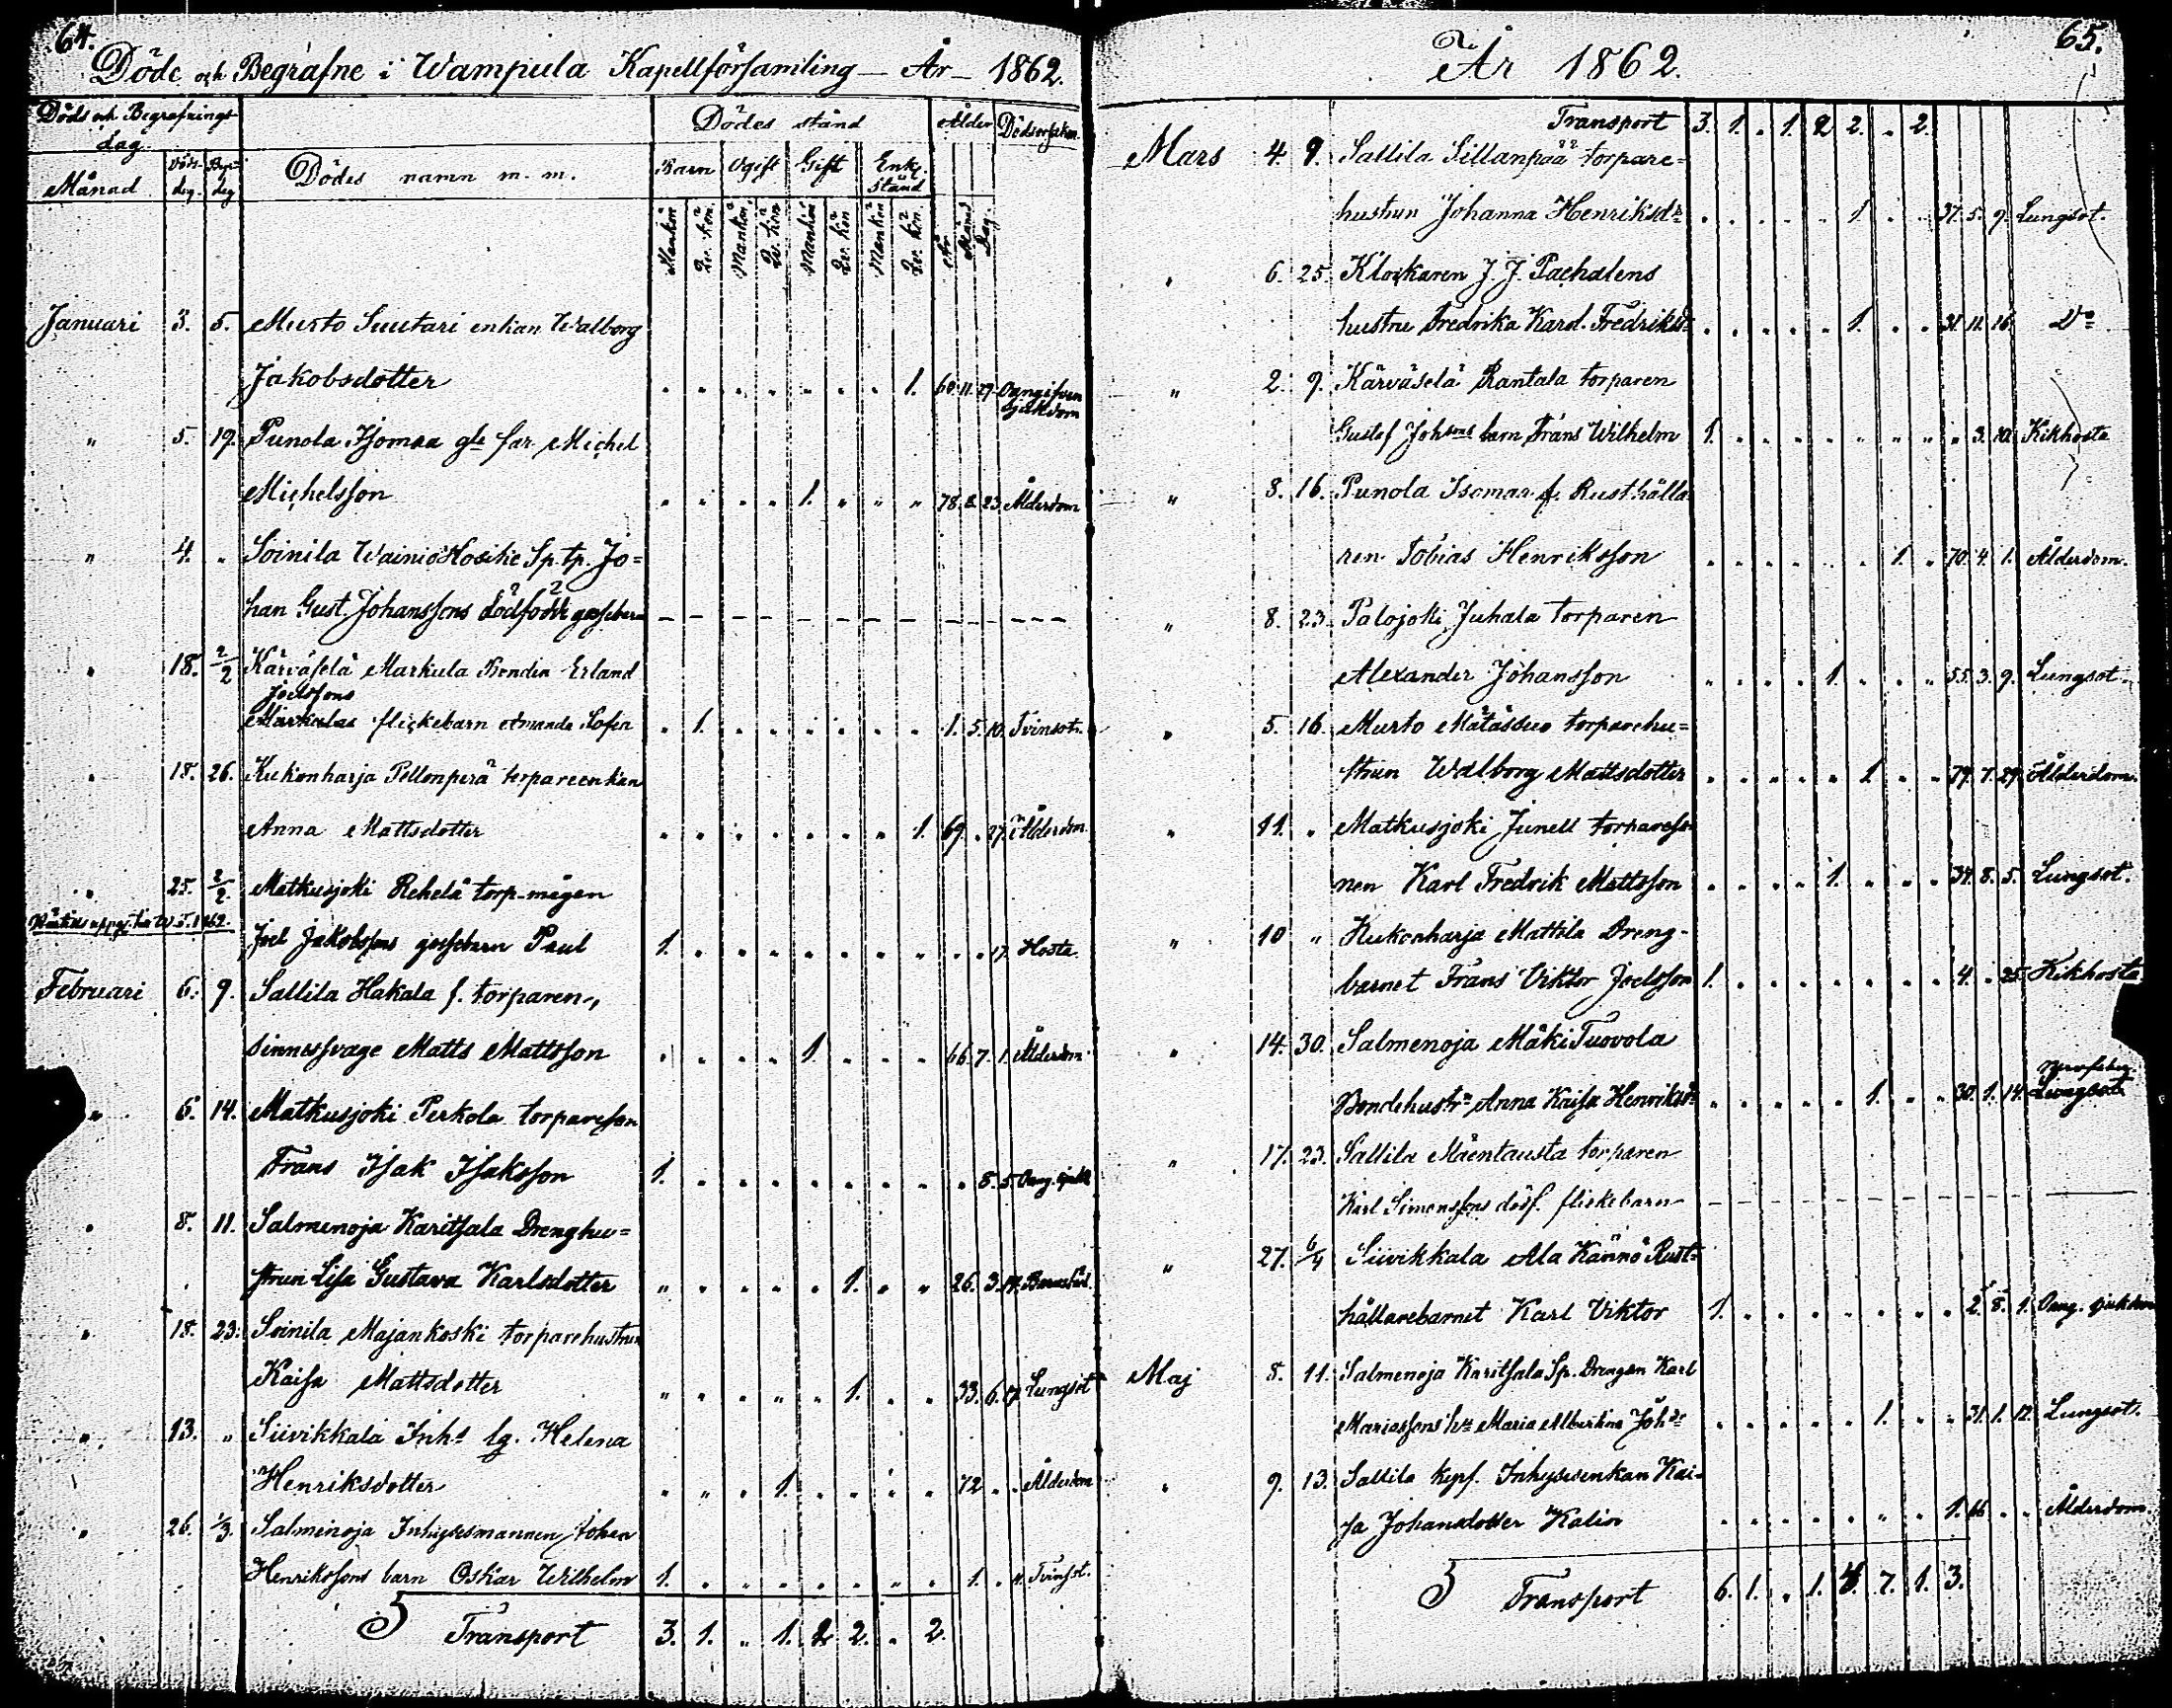 64.
Döde och Begrafne i Wampula Kapellförsamling – År – 1862.
Döds och Begrafnings dag.
Månad
Döds dag.
Begr. dag
Dödes namn m. m.
Dödes stånd
Barn Ogift Gift Enkl. stånd
Mankön Qv. kön. Mankön Qv. kön Mankön Qv. kön Mankön Qv. kön.
Ålder
År Månad Dag.
Dödsorsaken.
Januari 3. 5. Murto Suutari enkan Walborg
Jakobsdotter " " " " " " " 1. 60. 11. 27. Oangifven sjukdom
" 5. 19. Punola Isomaa gle far Michel
Michelsson " " " " 1. " " " 78. 2. 23. Ålderdom
" 4. " Soinila Wainio Sp. tp. Jo=
han Gust. Johanssons dödfödde gossebarn – – – – – – – – – – –
" 18. 2/2 Kärväselä Markula Bonden Erland
Joelssons
Markulas flickebarn Amanda Sofia " 1. " " " " " " 1. 5. 10. Tvinsot.
" 18. 26. Kukonharja Pellonperä torpareenkan
Anna Mattsdotter " " " " " " " 1. 69. " 27. Ålderdom
" 25. 2/2. Matkusjoki Rehelä torp-mågen
Joel Jakobssons gossebarn Paul 1. " " " " " " " " " 17. Hosta.
Februari 6. 9. Sallila Hakala f. torparen,
sinnessvage Matts Mattsson " " " " 1. " " " 66. 7. 1. Ålderdom
" 6. 14. Matkusjoki Perkola torpareson
Frans Isak Isaksson 1. " " " " " " " " 8. 5. Oang. sjukd.
" 8. 11. Salmenoja Karitsala Drenghu=
strun Lisa Gustava Karlsdotter " " " " " 1. " " 26. 3. 14. Barnsbörd.
" 18. 23. Soinila Majankoski torparehustrun
Kaisa Mattsdotter " " " " " 1. " " 33. 6. 17. Lungsot
" 13. " Siivikkala Inhs lg. Helena
Henriksdotter " " " 1. " " " " 72 " " Ålderdom
" 26. 1/3. Salmenoja Inhysesmannen Johan
Henrikssons barn Oskar Wilhelm 1. " " " " " " " 1. " 11. Tvinsot.
Transport 3. 1. " 1. 2 2. " 2.
65.
År 1862.
Transport 3. 1. " 1. 2 2. " 2.
Mars 4. 9. Sallila Sillanpää torpare=
hustrun Johanna Henriksdr " " " " " 1. " " 37. 5. 9. Lungsot.
" 6. 25. Klockaren J. J. Pachalens
hustru Fredrika Karol. Fredriksdr " " " " " 1. " " 31. 11. 16. Do
" 2. 9. Kärväselä Rantala torparen
Gustaf Johsons barn Frans Wilhelm 1. " " " " " " " " 3. 10. Kikhosta
" 8. 16. Punola Isomaa f. Rusthålla
ren Tobias Henriksson " " " " " " 1. " 70. 4. 1. Ålderdom.
" 8. 23. Palojoki Juhala torparen
Alexander Johansson " " " " 1. " " " 55. 3. 9. Lungsot.
" 5. 16. Murto Mätässuo torparehu=
strun Walborg Mattsdotter " " " " " 1. " " 79. 7. 29. Ålderdom.
" 11. " Matkusjoki Junell torpareso
nen Karl Fredrik Mattsson " " " " 1. " " " 34. 8. 5. Lungsot.
" 10 " Kukonharja Mattila Dreng-
barnet Frans Viktor Joelsson 1. " " " " " " " 4. " 25. Kikhosta.
" 14. 30. Salmenoja Mäki Tuovola
Bondehustr. Anna Kaisa Henriksdr " " " " " 1. " " 30. 1. 14. Lungsot
" 17. 23. Sallila Mäentausta torparen
Karl Simonssons döf. flickebarn – – – – – – – –
" 27. 6/4 Siivikkala Ala Kännö Rust=
hållarebarnet Karl Viktor 1. " " " " " " " 2. 8. 1. Oang. sjukdom
Maj 8. 11. Salmenoja Karitsala Sp. Drengen Karl
Mariassons hu Maria Albertina Johdr " " " " " 1. " " 31. 1. 12. Lungsot.
" 9. 13. Sallila kpf. Inhysesenkan Kai-
sa Johansdotter Kalin " " " " " " " 1. 66 " " Ålderdom
Transport 6. 1. " 1. 4. 7. 1. 3.